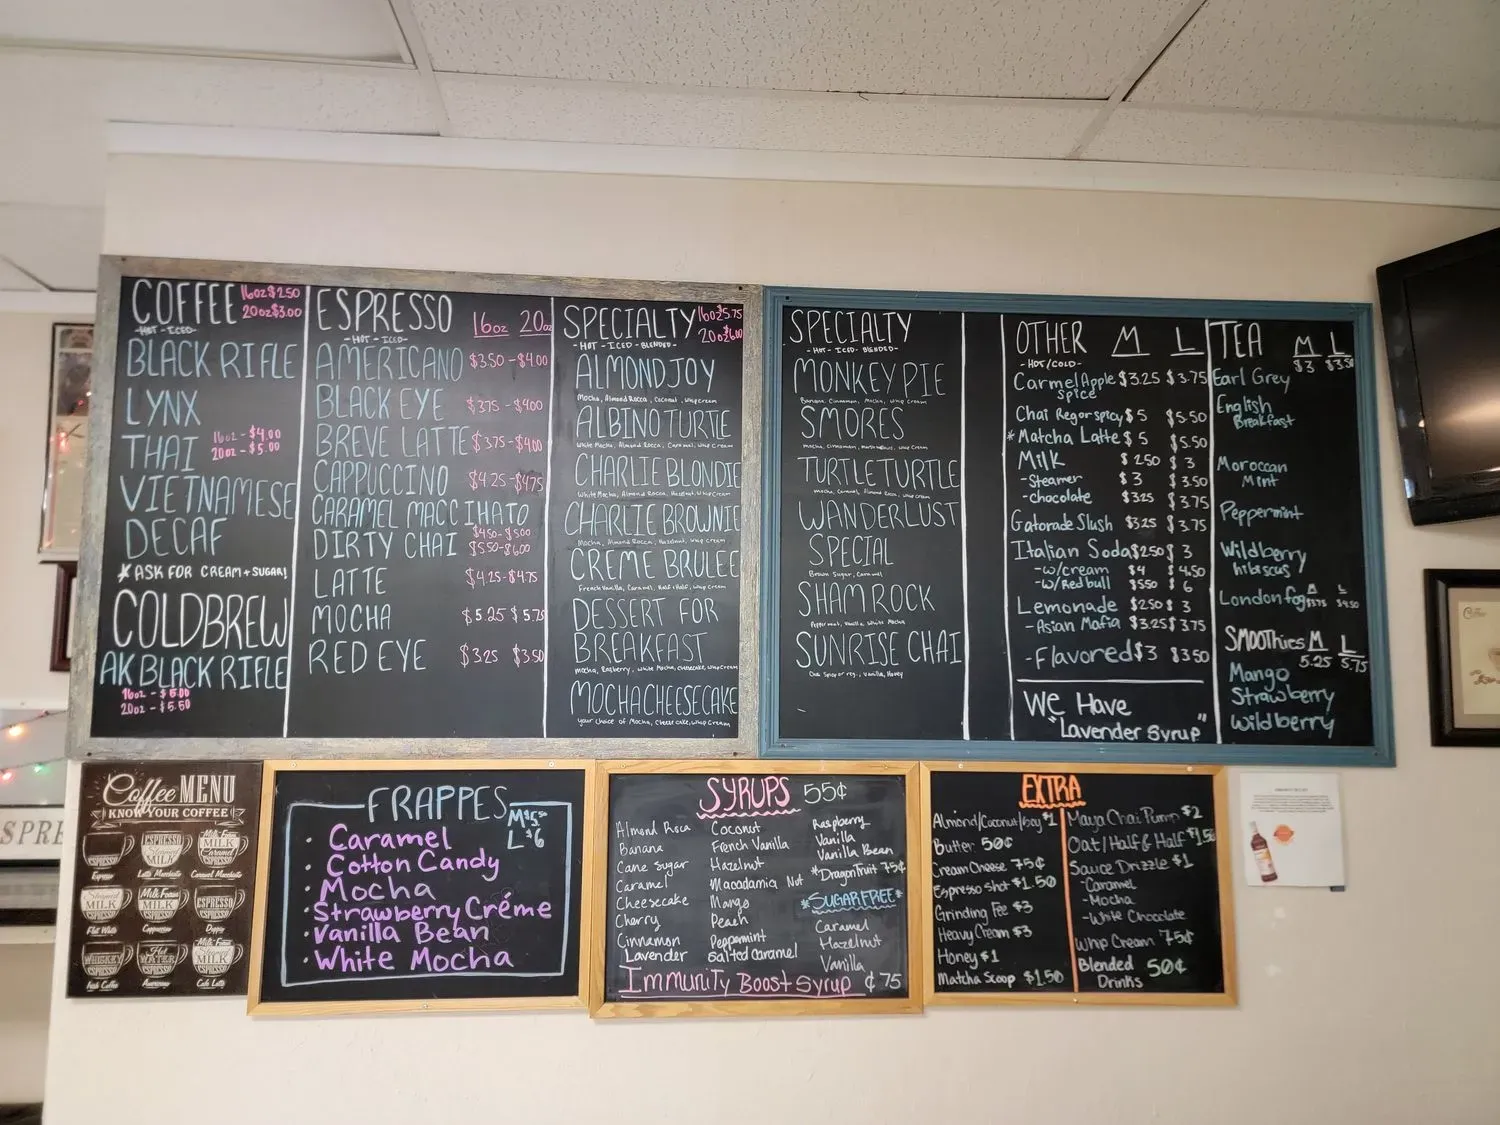 COFFEE 16oz $2.50
20oz $3.00
-HOT - ICED-
BLACK RIFLE
LYNX
THAI 16oz - $4.00
20oz - $5.00
VIETNAMESE
DECAF
*ASK FOR CREAM + SUGAR!
COLDBREW
AK BLACK RIFLE
16oz - $5.00
20oz - $5.50
ESPRESSO 16oz 20oz
-HOT - ICED-
AMERICANO $3.50 - $4.00
BLACK EYE $3.75 - $4.00
BREVE LATTE $3.75 - $4.00
CAPPUCCINO $4.25 - $4.75
CARAMEL MACCIHATO
$4.50 - $5.00
DIRTY CHAI $5.50 - $6.00
LATTE $4.25 - $4.75
MOCHA $5.25 $5.75
RED EYE $3.25 $3.50
SPECIALTY 16oz $5.75
20oz $6.00
-HOT - ICED - BLENDED-
ALMOND JOY
Mocha, Almond Rocca, Coconut, Whip Cream
ALBINO TURTLE
White Mocha, Almond Rocca, Caramel, Whip Cream
CHARLIE BLONDIE
White Mocha, Almond Rocca, Hazelnut, Whip Cream
CHARLIE BROWNIE
Mocha, Almond Rocca, Hazelnut, Whip Cream
CREME BRULEE
French Vanilla, Caramel, Half + Half, Whip Cream
DESSERT FOR
BREAKFAST
Mocha, Raspberry, White Mocha, Cheesecake, Whip Cream
MOCHACHEESECAKE
your choice of Mocha, Cheesecake, Whip Cream
SPECIALTY
-HOT - ICED - BLENDED-
MONKEY PIE
Banana, Cinnamon, Mocha, Whip Cream
SMORES
mocha, cinnamon, marshmallows, Whip Cream
TURTLE TURTLE
mocha, Caramel, Almond Rocca, Whip Cream
WANDERLUST
SPECIAL
Brown Sugar, Caramel
SHAMROCK
Peppermint, Vanilla, White Mocha
SUNRISE CHAI
Chai Spicy or reg., Vanilla, Honey
OTHER M L
-HOT/COLD-
Carmel Apple $3.25 $3.75
spice
Chai Reg or spicy $5 $5.50
*Matcha Latte $5 $5.50
Milk $2.50 $3
-Steamer $3 $3.50
-chocolate $3.25 $3.75
Gatorade Slush $3.25 $3.75
Italian Soda $2.50 $3
-w/cream $4 $4.50
-w/Redbull $5.50 $6
Lemonade $2.50 $3
-Asian Mafia $3.25 $3.75
-Flavored $3 $3.50
We Have
"Lavender Syrup"
TEA M L
$3 $3.50
Earl Grey
English
Breakfast
Moroccan
Mint
Peppermint
Wildberry
hibiscus
M L
London fog $3.75 $4.50
SMOOTHIES M L
5.25 5.75
Mango
Strawberry
Wildberry
Coffee MENU
KNOW YOUR COFFEE
FRAPPES
M $5.50
L $6
· Caramel
· Cotton Candy
· Mocha
· Strawberry Créme
· Vanilla Bean
· White Mocha
SYRUPS 55¢
Almond Roca
Banana
Cane Sugar
Caramel
Cheesecake
Cherry
Cinnamon
Lavender
Coconut
French Vanilla
Hazelnut
Macadamia Nut
Mango
Peach
Peppermint
Salted Caramel
Raspberry
Vanilla
Vanilla Bean
*Dragon Fruit 75¢
*SUGAR FREE*
Caramel
Hazelnut
Vanilla
Immunity Boost Syrup ¢75
EXTRA
Almond/Coconut/Soy $1
Butter 50¢
Cream Cheese 75¢
Espresso Shot $1.50
Grinding Fee $3
Heavy Cream $3
Honey $1
Matcha Scoop $1.50
Maya Chai Pump $2
Oat/Half & Half $1.50
Sauce Drizzle $1
-Caramel
-Mocha
-White Chocolate
Whip Cream 75¢
Blended 50¢
Drinks
SPRE